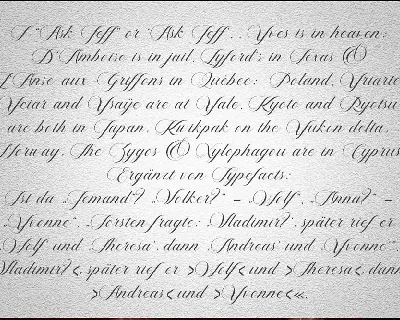 "Ask Jeff" or 'Ask Jeff'. Yves is in heaven;
D'Amboise is in jail. Lyford's in Texas &
L'Anse aux Griffons in Québec; Poland, Yriarte
Yciar and Ysaÿe are at Yale. Kyoto and Ryotsu
are both in Japan, Kwikpak on the Yukon delta,
Norway, The Zyges & Xylophagou are in Cyprus
Ergänzt von Typefacts:
Ist da „Jemand“? „Volker?“ – „Wolf“, „Anna?“ –
„Yvonne“. Torsten fragte: ‚Wladimir?‘, später rief er
‚Wolf‘ und ‚Theresa‘, dann ‚Andreas‘ und ‚Yvonne‘“.
Wladimir?‹, später rief er ›Wolf‹ und ›Theresa‹, dann
›Andreas‹ und ›Yvonne‹«.